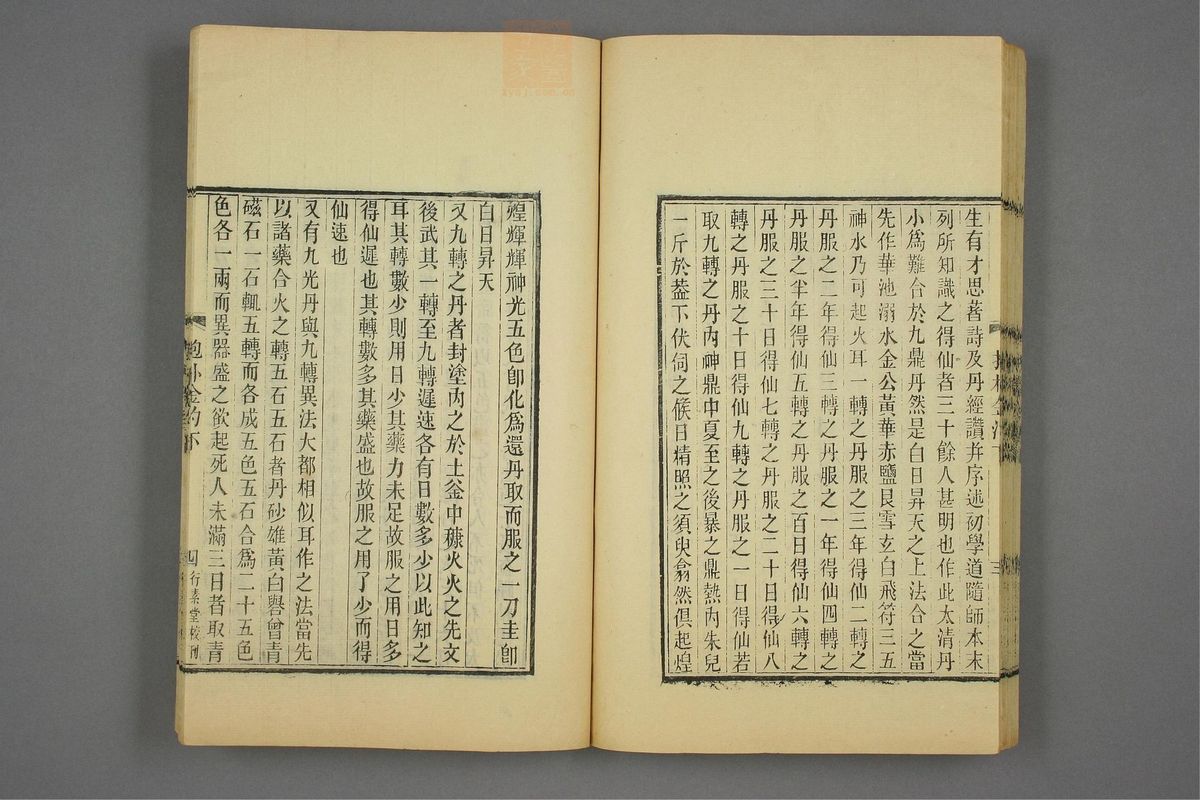 生有才思著詩及丹經讚并序述初學道隨師本末
列所知識之得仙者三十餘人甚明也作此太清丹
小爲難合於九鼎丹然是白日昇天之上法合之當
先作華池溺水金公黃華赤鹽艮雪玄白飛符三五
神水乃可起火耳一轉之丹服之三年得仙二轉之
丹服之二年得仙三轉之丹服之一年得仙四轉之
丹服之半年得仙五轉之丹服之百日得仙六轉之
丹服之三十日得仙七轉之丹服之二十日得仙八
轉之丹服之十日得仙九轉之丹服之一日得仙若
取九轉之丹內神鼎中夏至之後暴之鼎熱內朱兒
一斤於葢下伏伺之候日精照之須臾翕然俱起煌
煌輝輝神光五色卽化爲還丹取而服之一刀圭卽
白日昇天
又九轉之丹者封塗內之於土釜中糠火火之先文
後武其一轉至九轉遲速各有日數多少以此知之
耳其轉數少則用日少其藥力未足故服之用日多
得仙遲也其轉數多其藥盛也故服之用了少而得
仙速也
又有九光丹與九轉異法大都相似耳作之法當先
以諸藥合火之轉五石五石者丹砂雄黃白礬曾青
磁石一石輒五轉而各成五色五石合爲二十五色
色各一兩而異器盛之欲起死人未滿三日者取青
四 行素堂校刊
zysj.com.cn